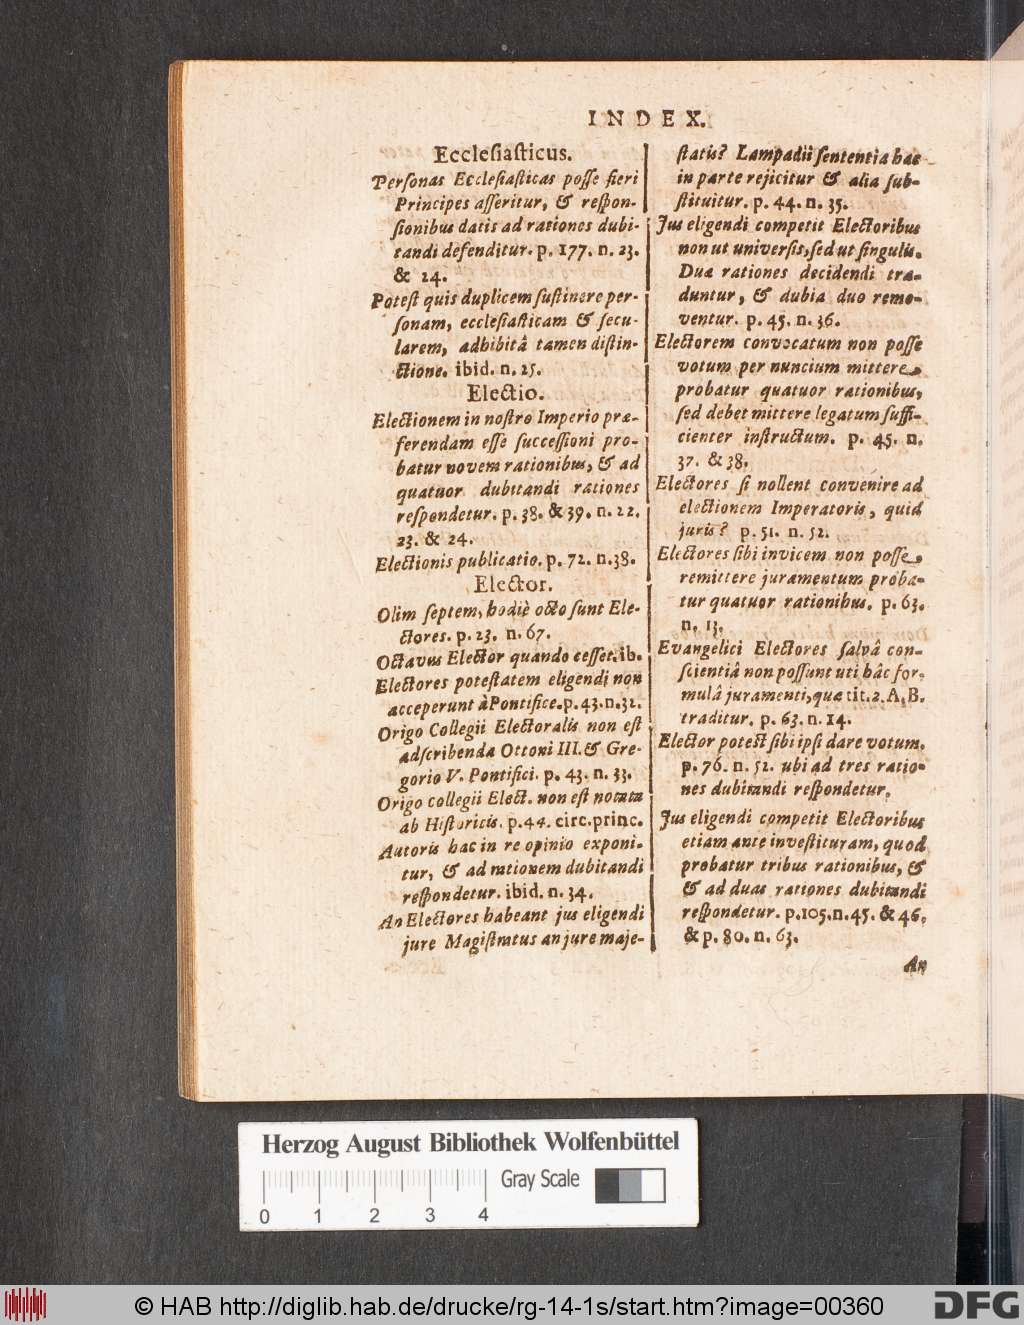 INDEX.
Ecclesiasticus.
Personas Ecclesiasticas posse fieri
Principes asseritur, & respon-
sionibus datis ad rationes dubi-
tandi defenditur. p. 177. n. 23.
& 24.
Potest quis duplicem sustinere per-
sonam, ecclesiasticam & secu-
larem, adhibitâ tamen distin-
ctione. ibid. n. 25.
Electio.
Electionem in nostro Imperio præ-
ferendam esse successioni pro-
batur novem rationibus, & ad
quatuor dubitandi rationes
respondetur. p. 38. & 39. n. 22.
23. & 24.
Electionis publicatio. p. 72. n. 38.
Elector.
Olim septem, hodiè octo sunt Ele-
ctores. p. 23. n. 67.
Octavus Elector quando cesset. ib.
Electores potestatem eligendi non
acceperunt à Pontifice. p. 43. n. 32.
Origo Collegii Electoralis non est
adscribenda Ottoni III. & Gre-
gorio V. Pontifici. p. 43. n. 33.
Origo collegii Elect. non est notata
ab Historicis. p. 44. circ. princ.
Autoris hac in re opinio exponi-
tur, & ad rationem dubitandi
respondetur. ibid. n. 34.
An Electores habeant jus eligendi
jure Magistratus an jure maje-
statis? Lampadii sententia hac
in parte rejicitur & alia sub-
stituitur. p. 44. n. 35.
Jus eligendi competit Electoribus
non ut universis, sed ut singulis.
Duæ rationes decidendi tra-
duntur, & dubia duo remo-
ventur. p. 45. n. 36.
Electorem convocatum non posse
votum per nuncium mittere
probatur quatuor rationibus,
sed debet mittere legatum suffi-
cienter instructum. p. 45. n.
37. & 38.
Electores si nollent convenire ad
electionem Imperatoris, quid
juris? p. 51. n. 52.
Electores sibi invicem non posse
remittere juramentum proba-
tur quatuor rationibus. p. 63.
n. 13.
Evangelici Electores salvâ con-
scientiâ non possunt uti hâc for-
mulâ juramenti, quæ tit. 2. A. B.
traditur. p. 63. n. 14.
Elector potest sibi ipsi dare votum.
p. 76. n. 52. ubi ad tres ratio-
nes dubitandi respondetur.
Jus eligendi competit Electoribus
etiam ante investituram, quod
probatur tribus rationibus, &
& ad duas rationes dubitandi
respondetur. p. 105. n. 45. & 46.
& p. 80. n. 63.
An
Herzog August Bibliothek Wolfenbüttel
Gray Scale
0 1 2 3 4
© HAB http://diglib.hab.de/drucke/rg-14-1s/start.htm?image=00360
DFG